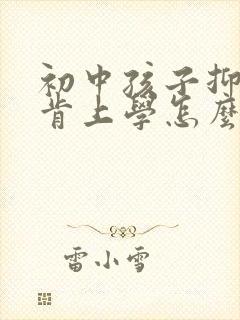 初中孩子抑
肯上學怎麼
雷小雪